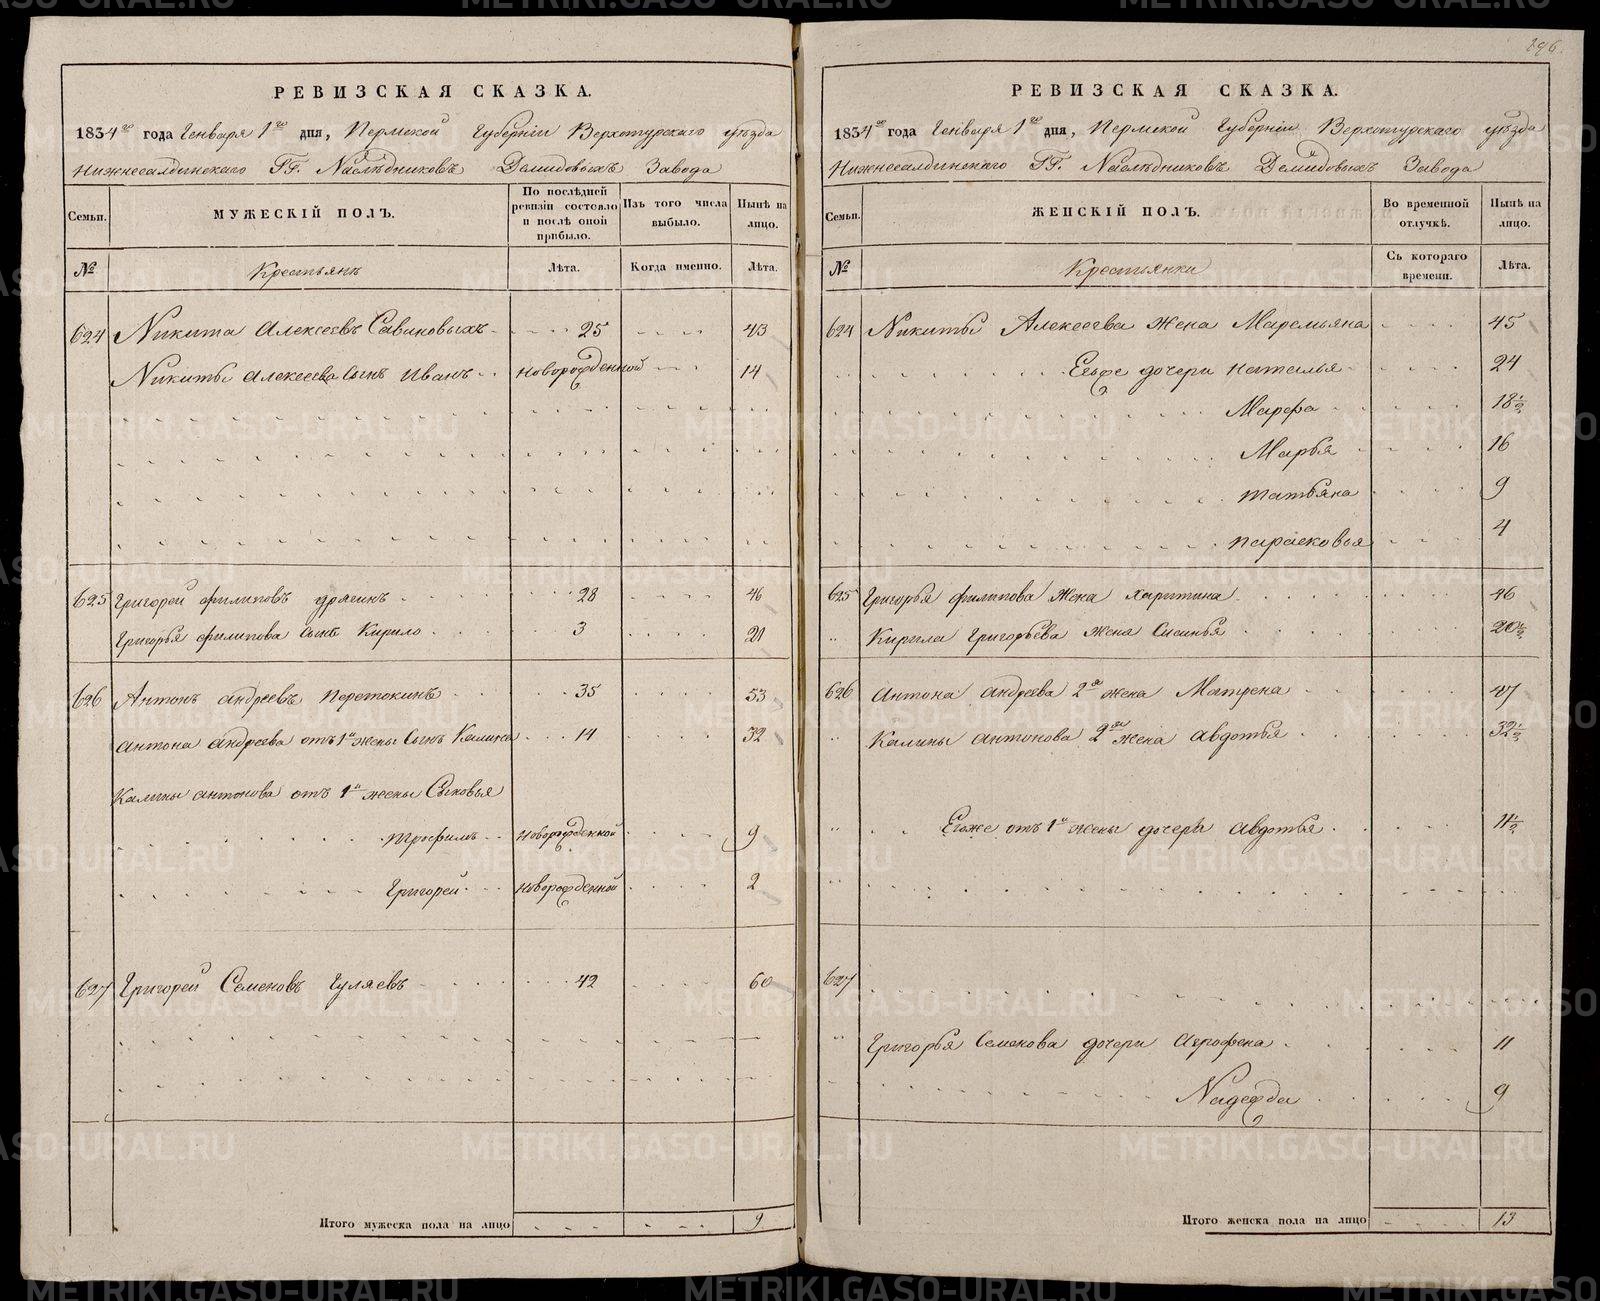 296.
РЕВИЗСКАЯ СКАЗКА.
1834го года Генваря 1го дня, Пермской Губерніи Верхотурскаго уѣзда
Нижнесалдинскаго ГГ. Наслѣдниковъ Демидовыхъ Завода
Семьи.
МУЖЕСКІЙ ПОЛЪ.
По послѣдней ревизіи состояло и послѣ оной прибыло.
Изъ того числа выбыло.
Нынѣ на лицо.
№ Крестьянъ Лѣта. Когда именно. Лѣта.
624 Никита Алексеевъ Савиновыхъ 25 43
Никиты Алексеева Сынъ Иванъ новорожденной 14
625 Григорей Филиповъ 28 46
Григорья Филипова Сынъ Кирило 3 21
626 Антонъ Андреевъ Перетокинъ 35 53
Антона Андреева отъ 1й жены Сынъ Калина 14 32
Калины Антонова отъ 1й жены Сыновья
Трофимъ новорожденной 9
Григорей новорожденной 2
627 Григорей Семеновъ Гуляевъ 42 60
Итого мужеска пола на лицо 9
РЕВИЗСКАЯ СКАЗКА.
1834го года Генваря 1го дня, Пермской Губерніи Верхотурскаго уѣзда
Нижнесалдинскаго ГГ. Наслѣдниковъ Демидовыхъ Завода
Семьи.
ЖЕНСКІЙ ПОЛЪ.
Во временной отлучкѣ.
Нынѣ на лицо.
№ Крестьянки Съ котораго времени. Лѣта.
624 Никиты Алексеева жена Маремьяна 45
Егоже дочери Наталья 24
Марфа 18½
Марья 16
Татьяна 9
Парасковья 4
625 Григорья Филипова жена Харитина 46
" Кирила Григорьева жена 20½
626 Антона Андреева 2я жена Матрена 47
" Калины Антонова 2я жена Авдотья 32½
" Егоже отъ 1й жены дочерь Авдотья 11½
627
" Григорья Семенова дочери Агрофена 11
Надежда 9
Итого женска пола на лицо 13
METRIKI.GASO-URAL.RU